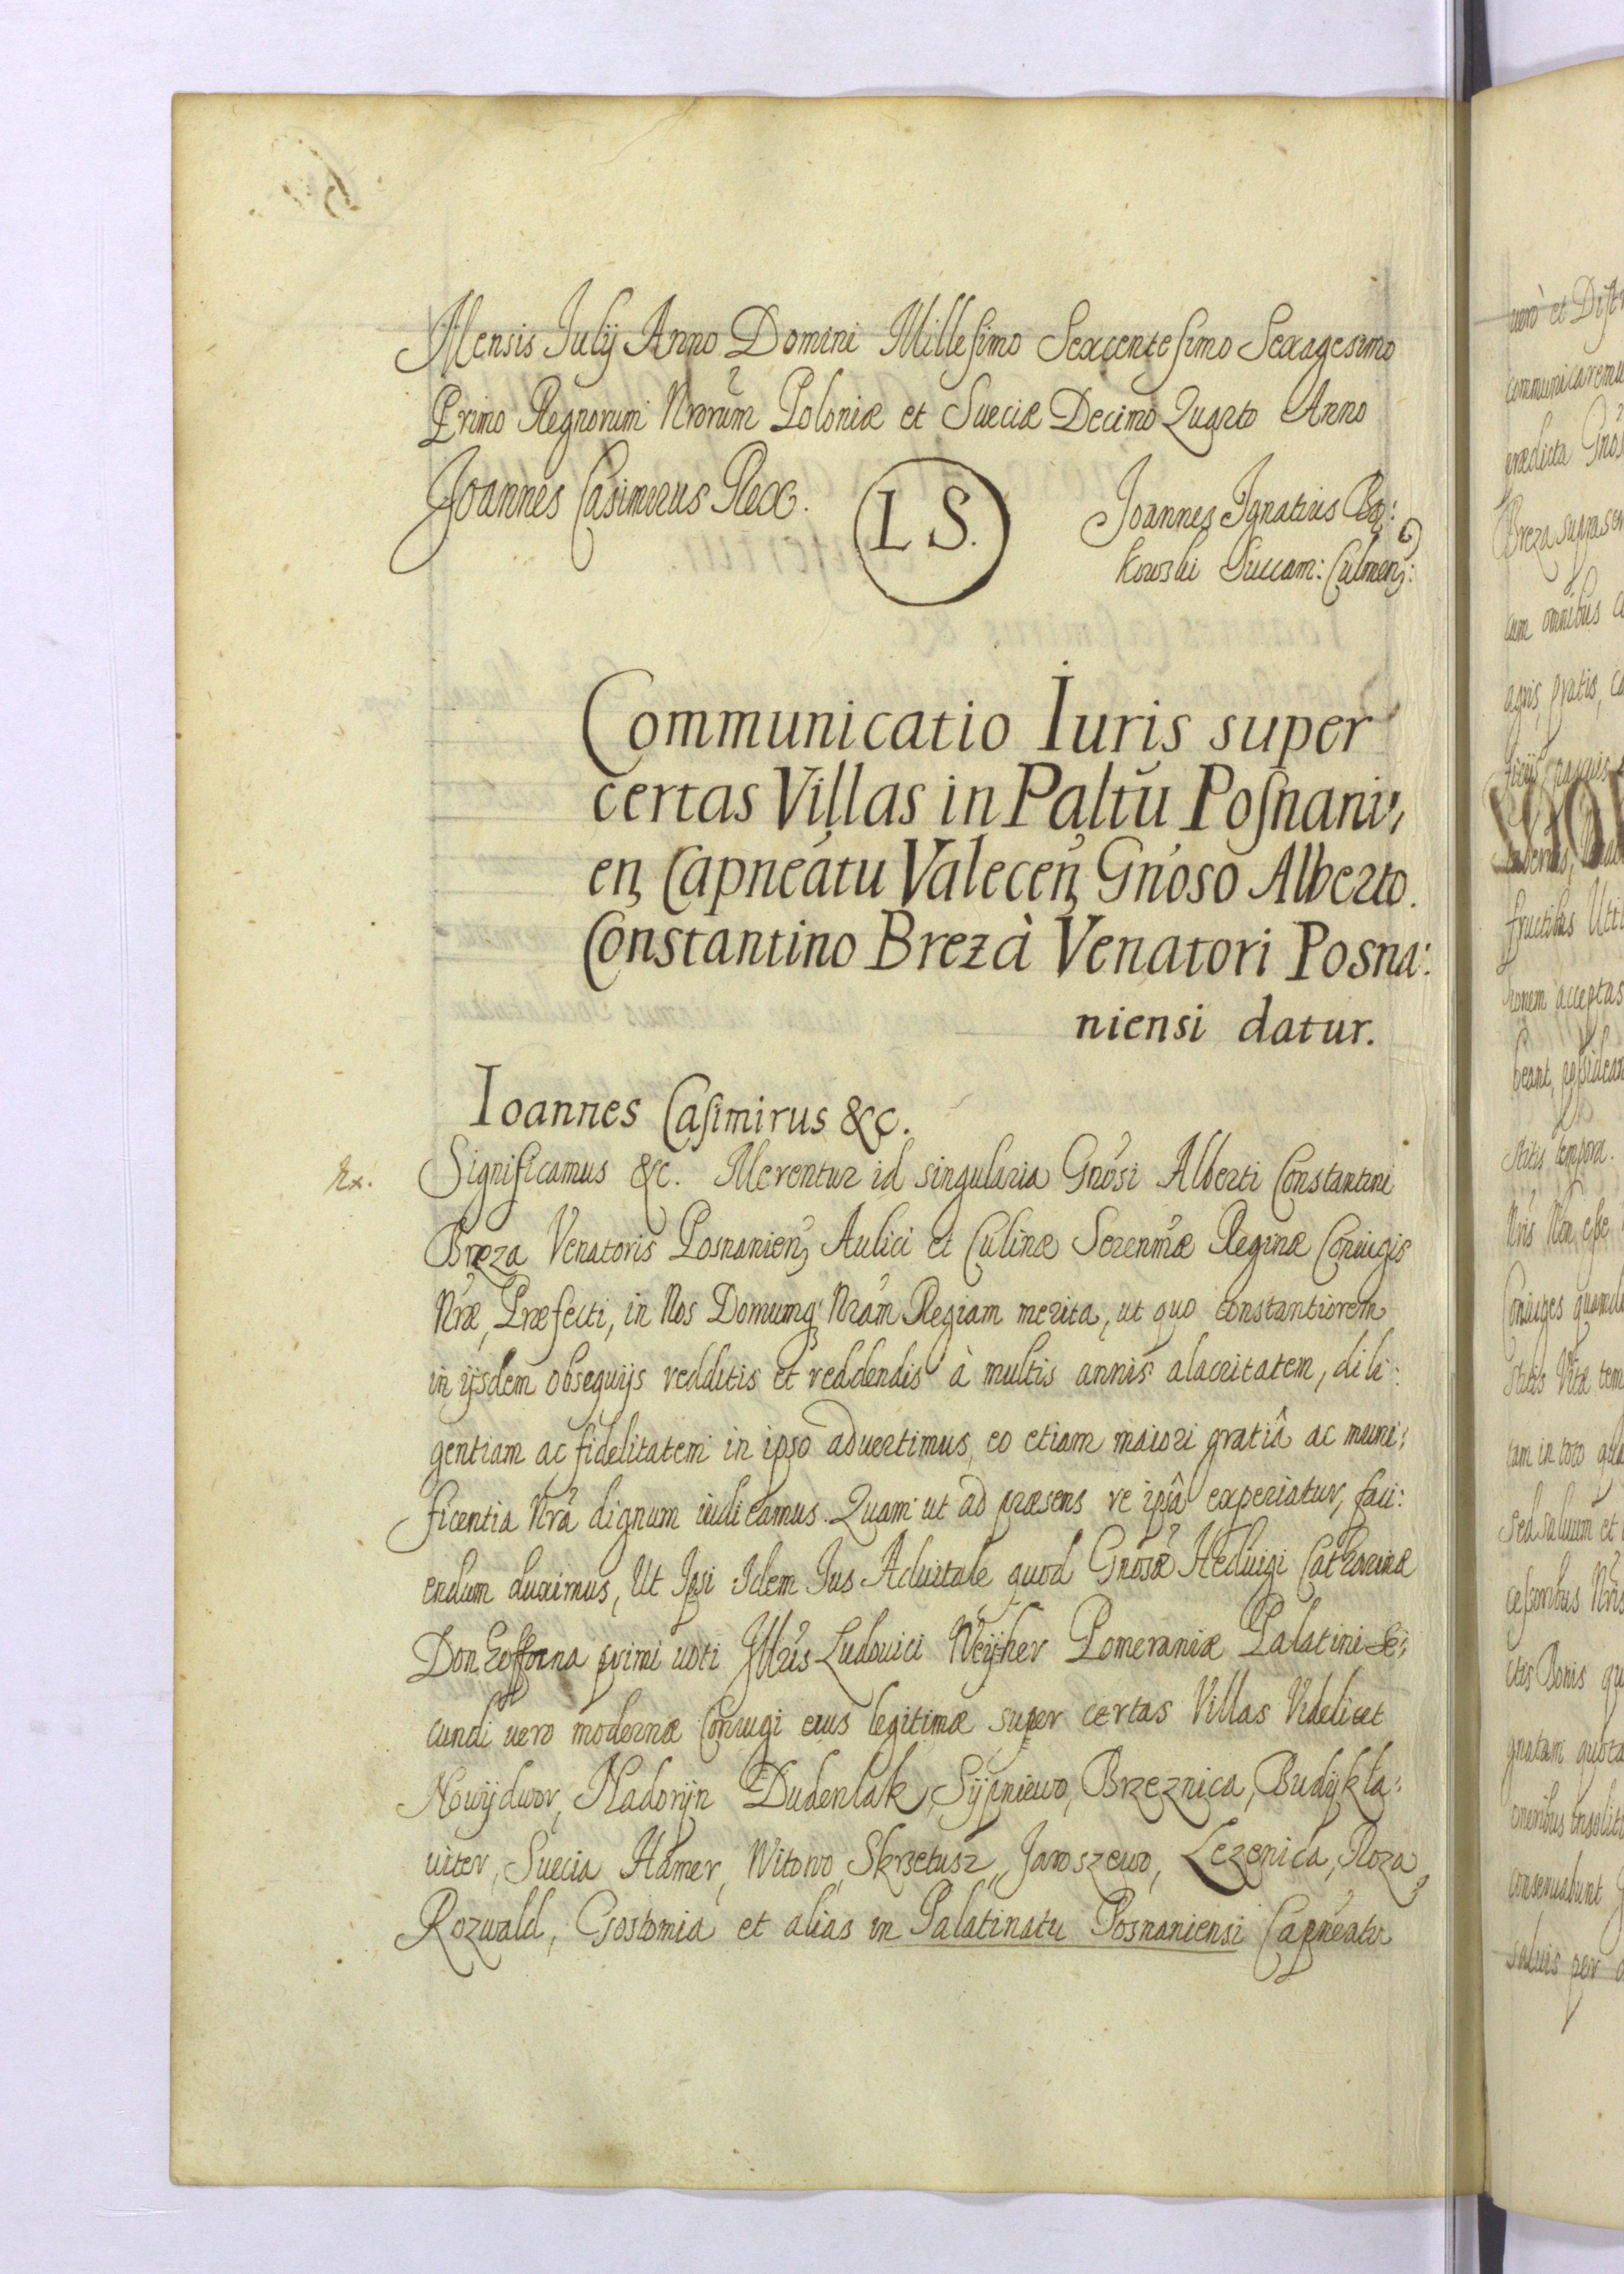 Mensis Julij Anno Domini Millesimo Sexcentesimo Sexagesimo
Primo Regnorum Nrorum Poloniæ et Sueciæ Decimo Quarto Anno
Joannes Casimirus Rex.
L S.
Joannes Ignatius Bą:
kowski Succam: Culmen:
Communicatio Iuris super
certas Villas in Paltũ Posnani,
en, Capneátu Valecen, Gnoso Alberto
Constantino Brezà Venatori Posna:
niensi datur.
Ioannes Casimirus &c.
Rx.
Significamus &c. Merentur id singularia Gnosi Alberti Constantini
Breza Venatoris Posnanien, Aulici et Culinæ Serenmæ Reginæ Coniugis
Nræ, Præfecti, in Nos Domumq Nram Regiam merita, ut quo constantiorem
in ijsdem obsequijs redditis et reddendis à multis annis alacritatem, dili:
gentiam ac fidelitatem in ipso advertimus, eo etiam maiori gratiâ ac muni:
ficentia Nrâ dignum iudicamus. Quam ut ad præsens re ipsâ experiatur, faci:
endum duximus, Ut Ipsi Idem Ius Advitale quod Gnosæ Hedvigi Catharinæ
primi voti Illris Ludovici Weÿher Pomeraniæ Palatini Se:
cundi vero modernæ Coniugi eius legitimæ super certas Villas Videlicet
Nowÿdwor, Nadorÿn Dudenlak, Sÿpniewo, Brzeznica, Budÿkla:
uiter, Suecia Hamer, Witowo, Skrzetusz, Jaroszewo, Lezenica, Roza,
Rozwald, Gostomia et alias in Palatinatu Posnaniensi Capneatu